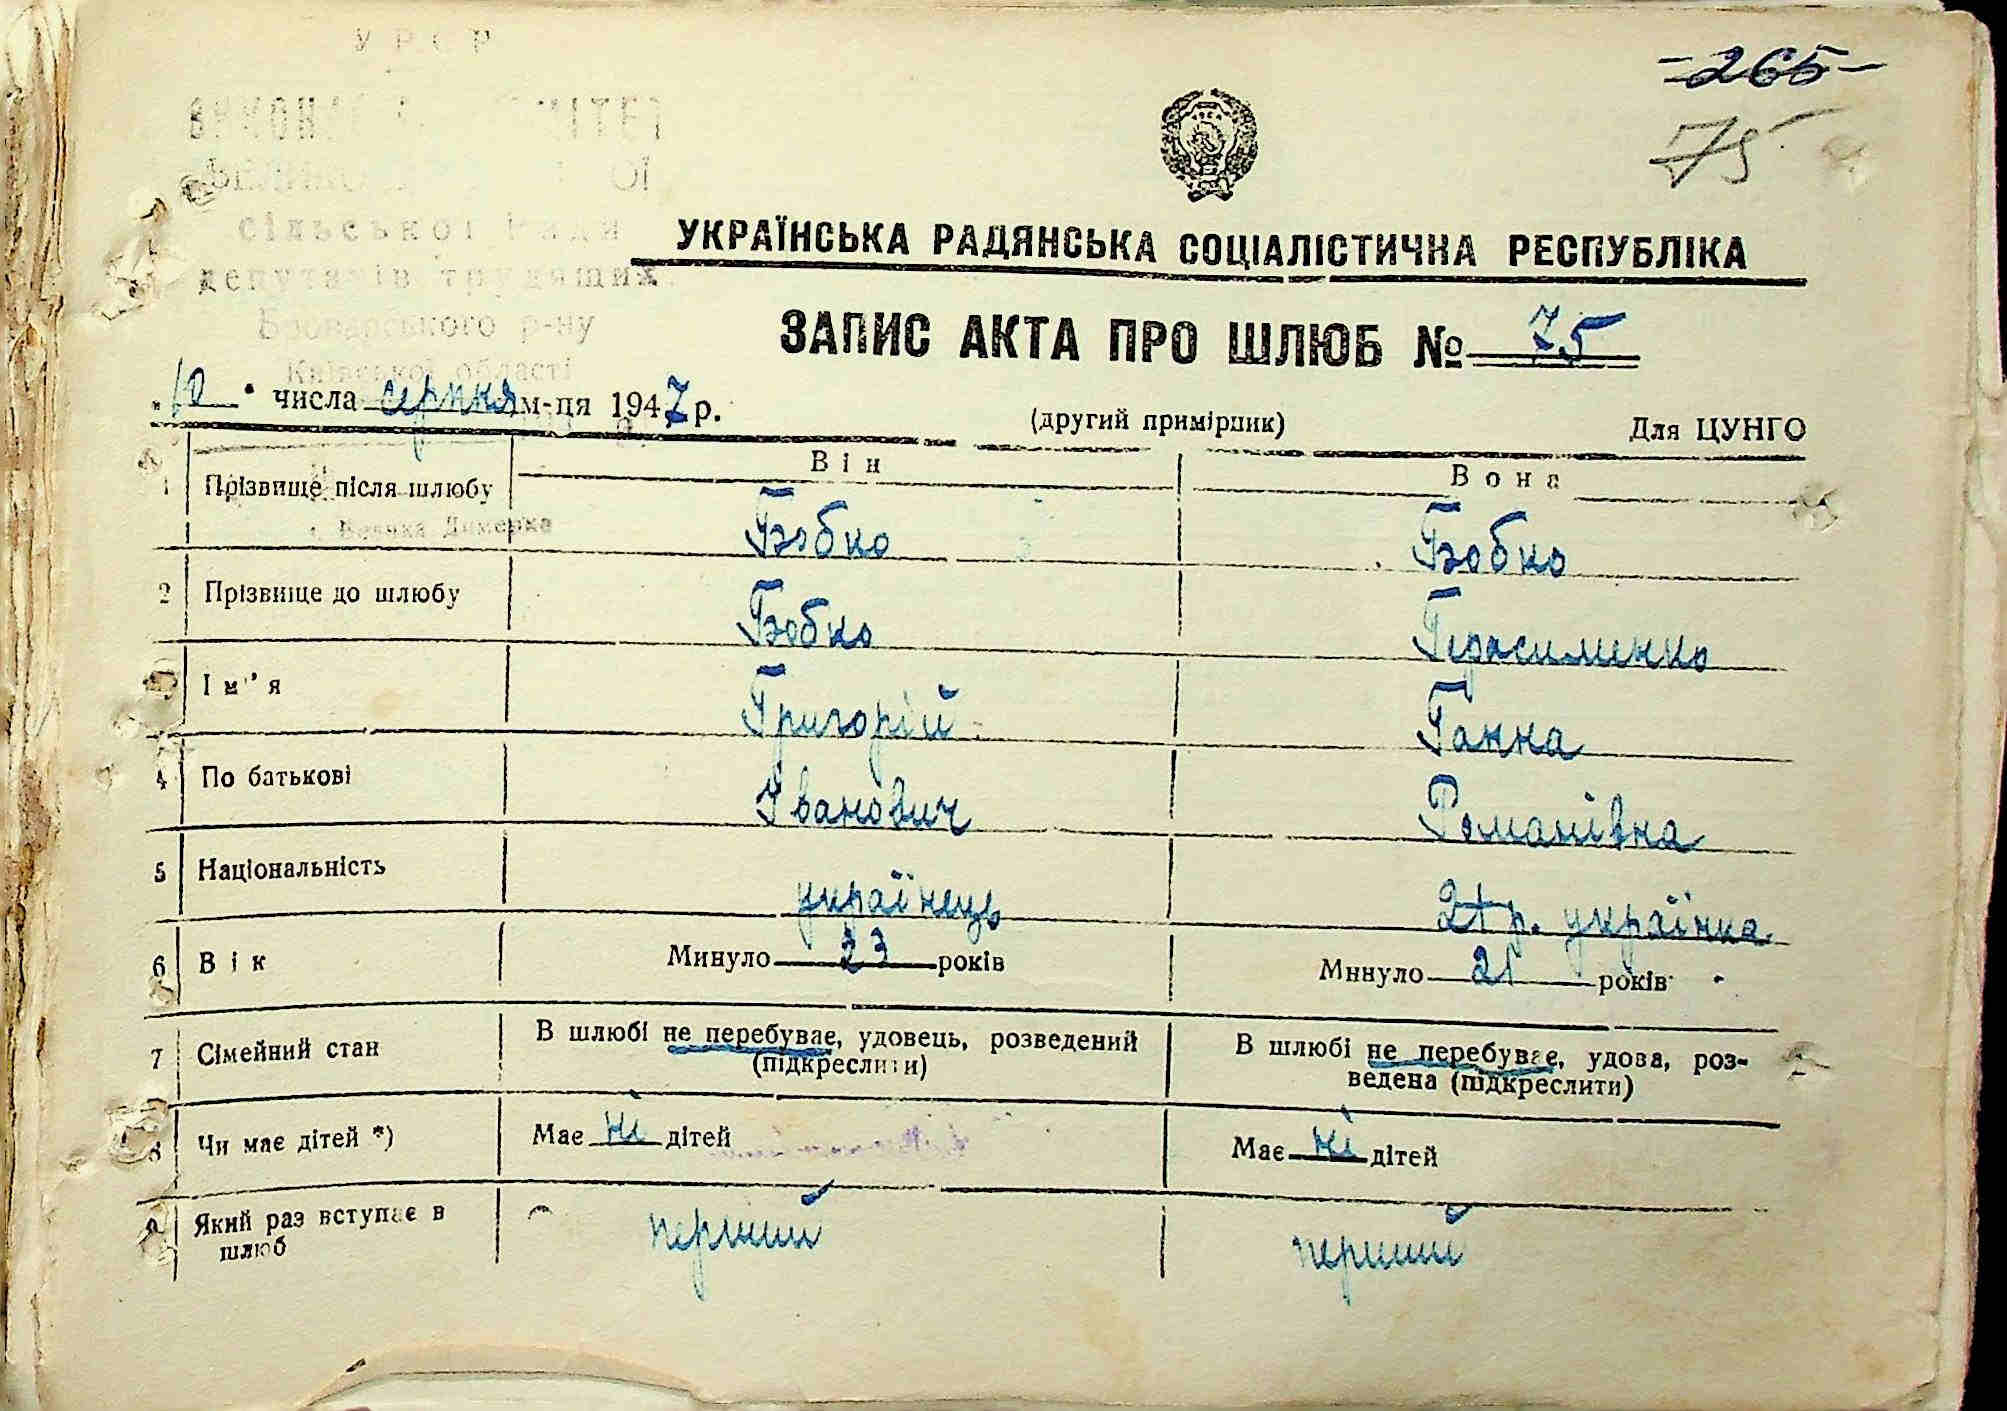 УРСР
-265-
75
сільської Ради
депутатів трудящих
Броварського р-ну
Київської області
УКРАЇНСЬКА РАДЯНСЬКА СОЦІАЛІСТИЧНА РЕСПУБЛІКА
ЗАПИС АКТА ПРО ШЛЮБ № 75
"10" числа серпня м-ця 1947 р.
(другий примірник)
Для ЦУНГО
Він
Вона
1 Прізвище після шлюбу Бобко Бобко
Велика Димерка
2 Прізвище до шлюбу Бобко Герасименко
Ім'я Григорій Ганна
4 По батькові Іванович Романівна
5 Національність українець 21 р. українка
6 Вік Минуло 23 років Минуло 21 років
7 Сімейний стан В шлюбі не перебуває, удовець, розведений (підкреслити) В шлюбі не перебуває, удова, роз-
ведена (підкреслити)
8 Чи має дітей *) Має ні дітей Має ні дітей
9 Який раз вступає в шлюб перший перший